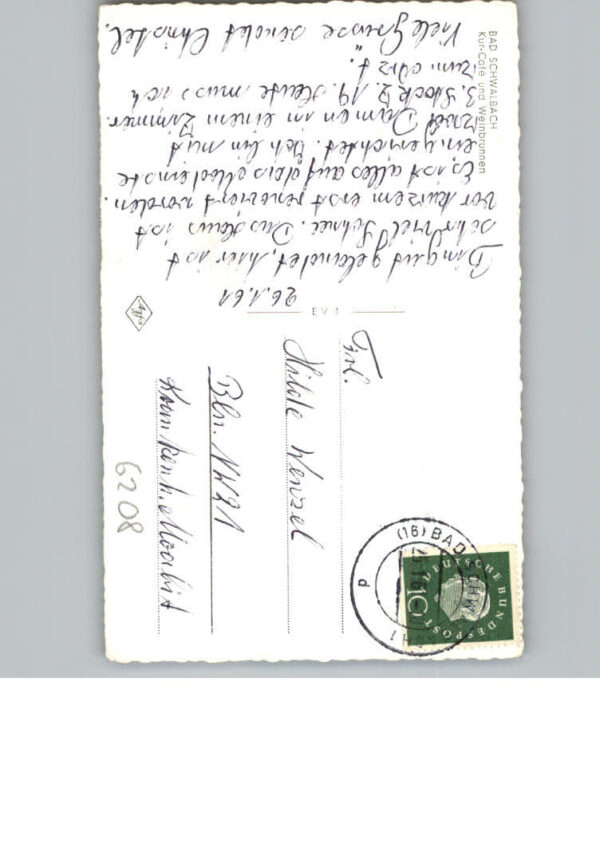 BAD SCHWALBACH
Kur-Café und Weinbrunnen
26.1.61
Bin gut gelandet, hier ist
sehr viel Schnee. Das Haus ist
vor kurzem erst renoviert worden.
Es ist alles auf das Modernste
eingerichtet. Ich bin mit
zwei Damen in einem Zimmer.
3. Stock Z. 19. Heute muss ich
zum Arzt.
Viele Grüsse sendet Christel.
EV 1
Agfa
Frl.
Hilde Wenzel
Bln. NW 21
Krankenh. Moabit
6208
(16) BAD SCHW
DEUTSCHE BUNDESPOST
10